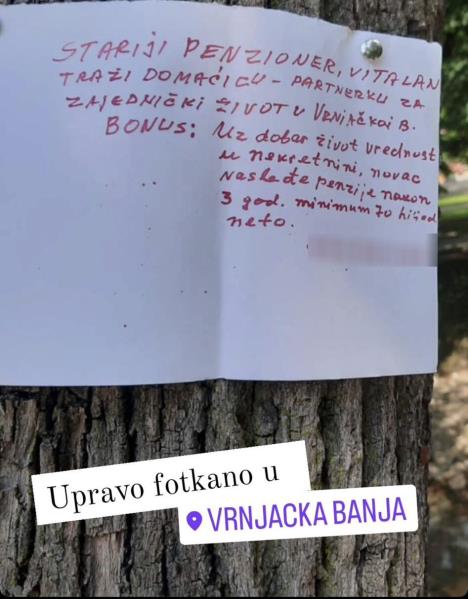 STARIJI PENZIONER, VITALAN
TRAŽI DOMAĆICU - PARTNERKU ZA
ZAJEDNIČKI ŽIVOT U VRNJAČKOJ B.
BONUS: Uz dobar život vrednost
u nekretnini, novac
nasleđe penzije nakon
3 god. minimum 70 hiljad
neto.
Upravo fotkano u
VRNJACKA BANJA